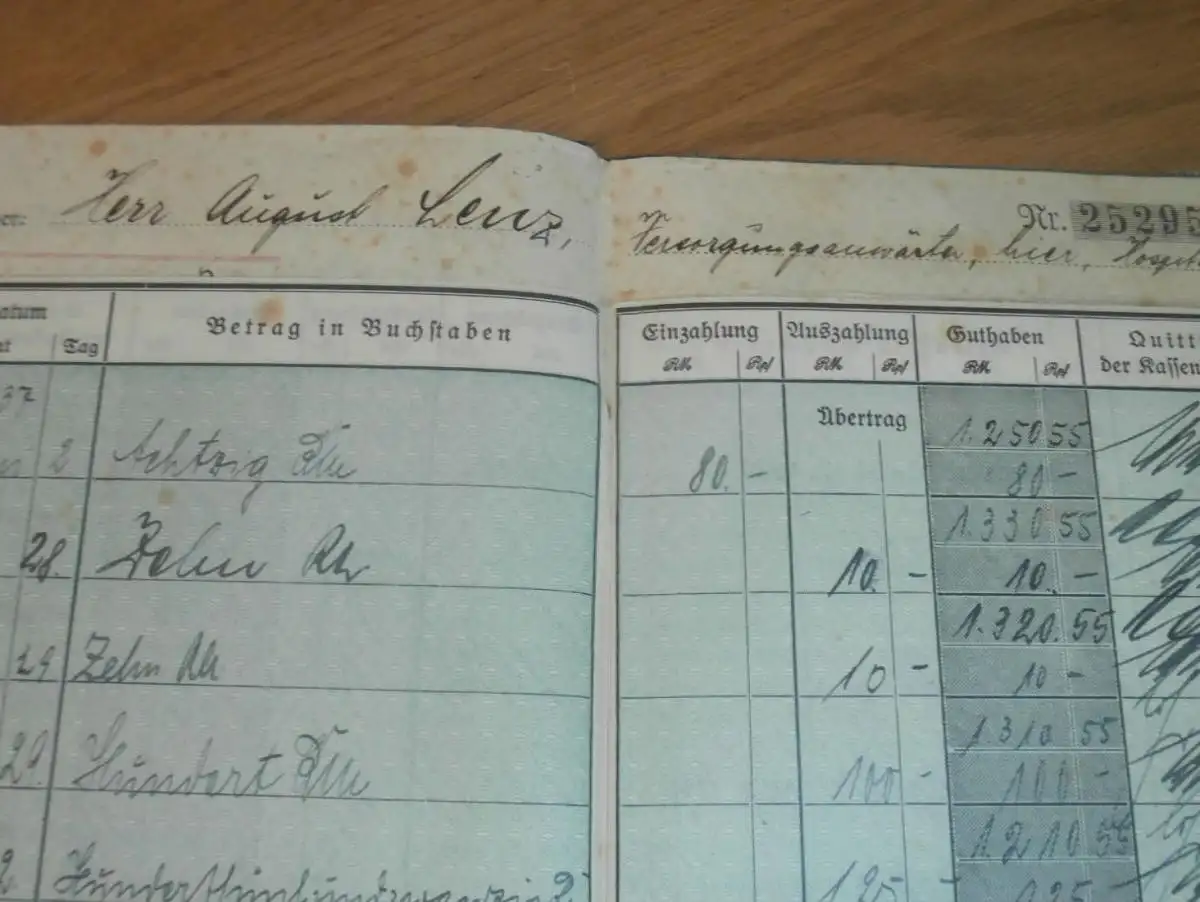 Herr August Lenz,
Nr. 25295
Versorgungsanwärter, hier,
Tag Betrag in Buchstaben
Einzahlung Auszahlung Guthaben
der Kassen
RM Rpf RM Rpf RM Rpf
37 Übertrag 1.250 55
2 Achtzig RM 80.- 80 -
1.330 55
28. Zehn RM 10. - 10. -
1.320. 55
29 Zehn RM 10 - 10 -
1.310 55
29. Hundert RM 100 - 100 -
1.210 55
2. Hundertfünfundzwanzig 125 - 125 -